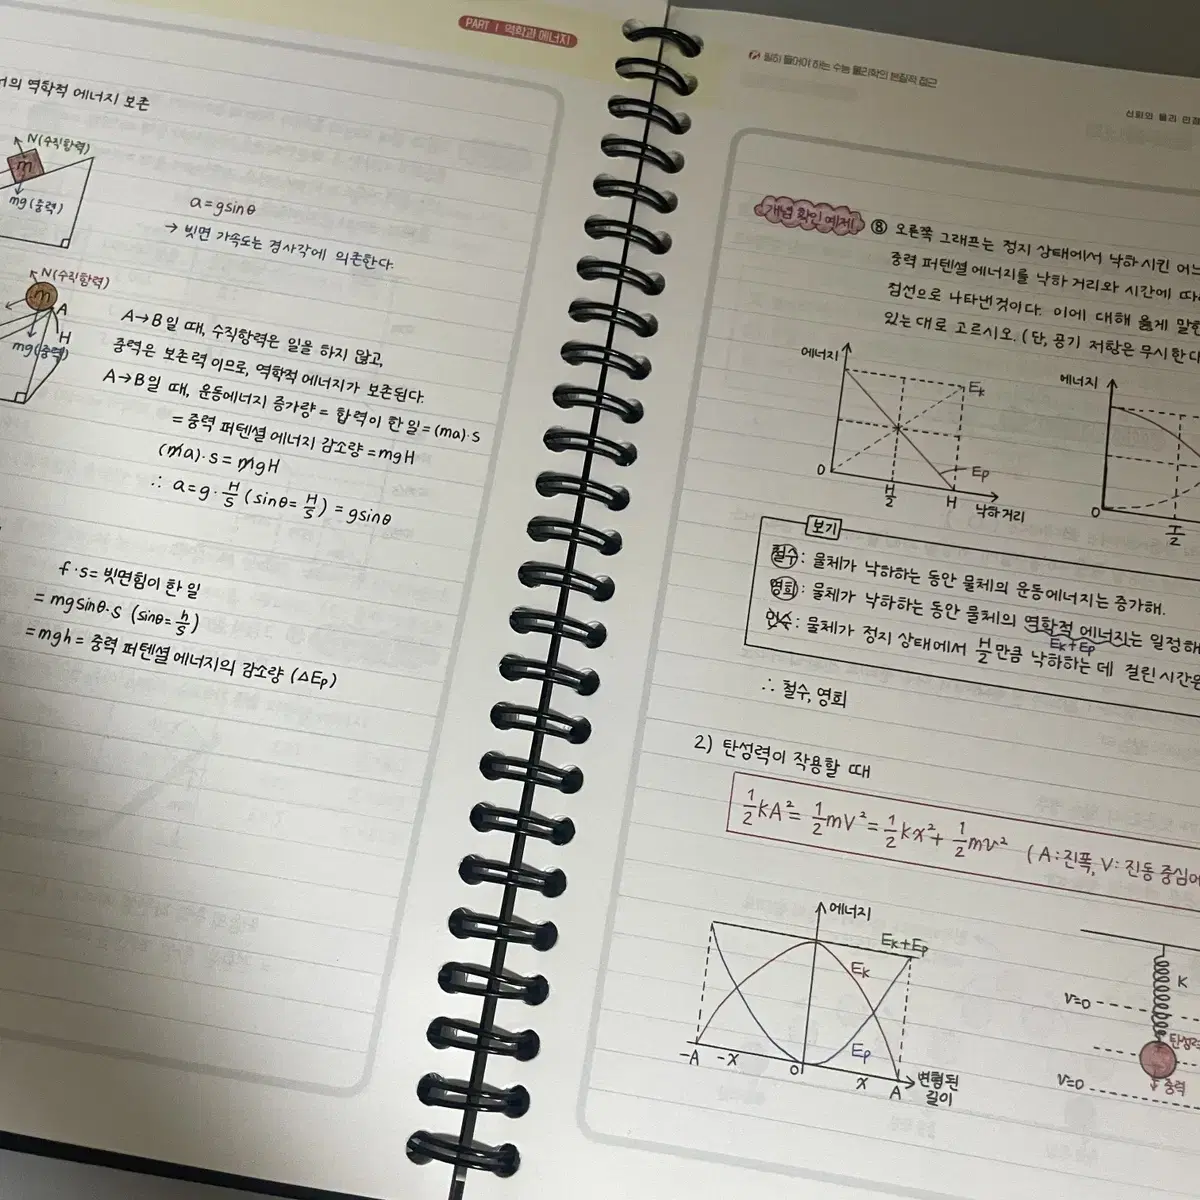 PART 1 역학과 에너지
의 역학적 에너지 보존
N(수직항력)
m
mg(중력)
a=gsinθ
→ 빗면 가속도는 경사각에 의존한다.
N(수직항력)
m
A
H
mg(중력)
A→B일 때, 수직항력은 일을 하지 않고,
중력은 보존력이므로, 역학적 에너지가 보존된다.
A→B일 때, 운동에너지 증가량 = 합력이 한 일 = (ma)·s
= 중력 퍼텐셜 에너지 감소량 = mgH
(ma)·s = mgH
∴ a = g·H/S (sinθ = H/S) = gsinθ
f·s = 빗면힘이 한 일
= mgsinθ·s (sinθ = h/s)
= mgh = 중력 퍼텐셜 에너지의 감소량 (△Ep)
필히 들어야 하는 수능 물리학의 본질적 접근
신림의 물리
개념 확인 예제!
⑧ 오른쪽 그래프는 정지 상태에서 낙하시킨
중력 퍼텐셜 에너지를 낙하 거리와 시간에
점선으로 나타낸 것이다. 이에 대해 옳게
있는 대로 고르시오. (단, 공기 저항은 무시한다
에너지
Ek
Ep
0
H/2
H
낙하거리
에너지
0
T/2
보기
철수: 물체가 낙하하는 동안 물체의 운동에너지는 증가해.
영희: 물체가 낙하하는 동안 물체의 역학적 에너지는 일정해
Ek+Ep
민수: 물체가 정지 상태에서 H/2만큼 낙하하는 데 걸린 시간은
∴ 철수, 영희
2) 탄성력이 작용할 때
1/2kA² = 1/2mV² = 1/2kx² + 1/2mv² (A:진폭, V: 진동 중심에
에너지
Ek+Ep
Ek
Ep
-A
-x
0
x
A
변형된
길이
K
v=0
탄성력
중력
v=0